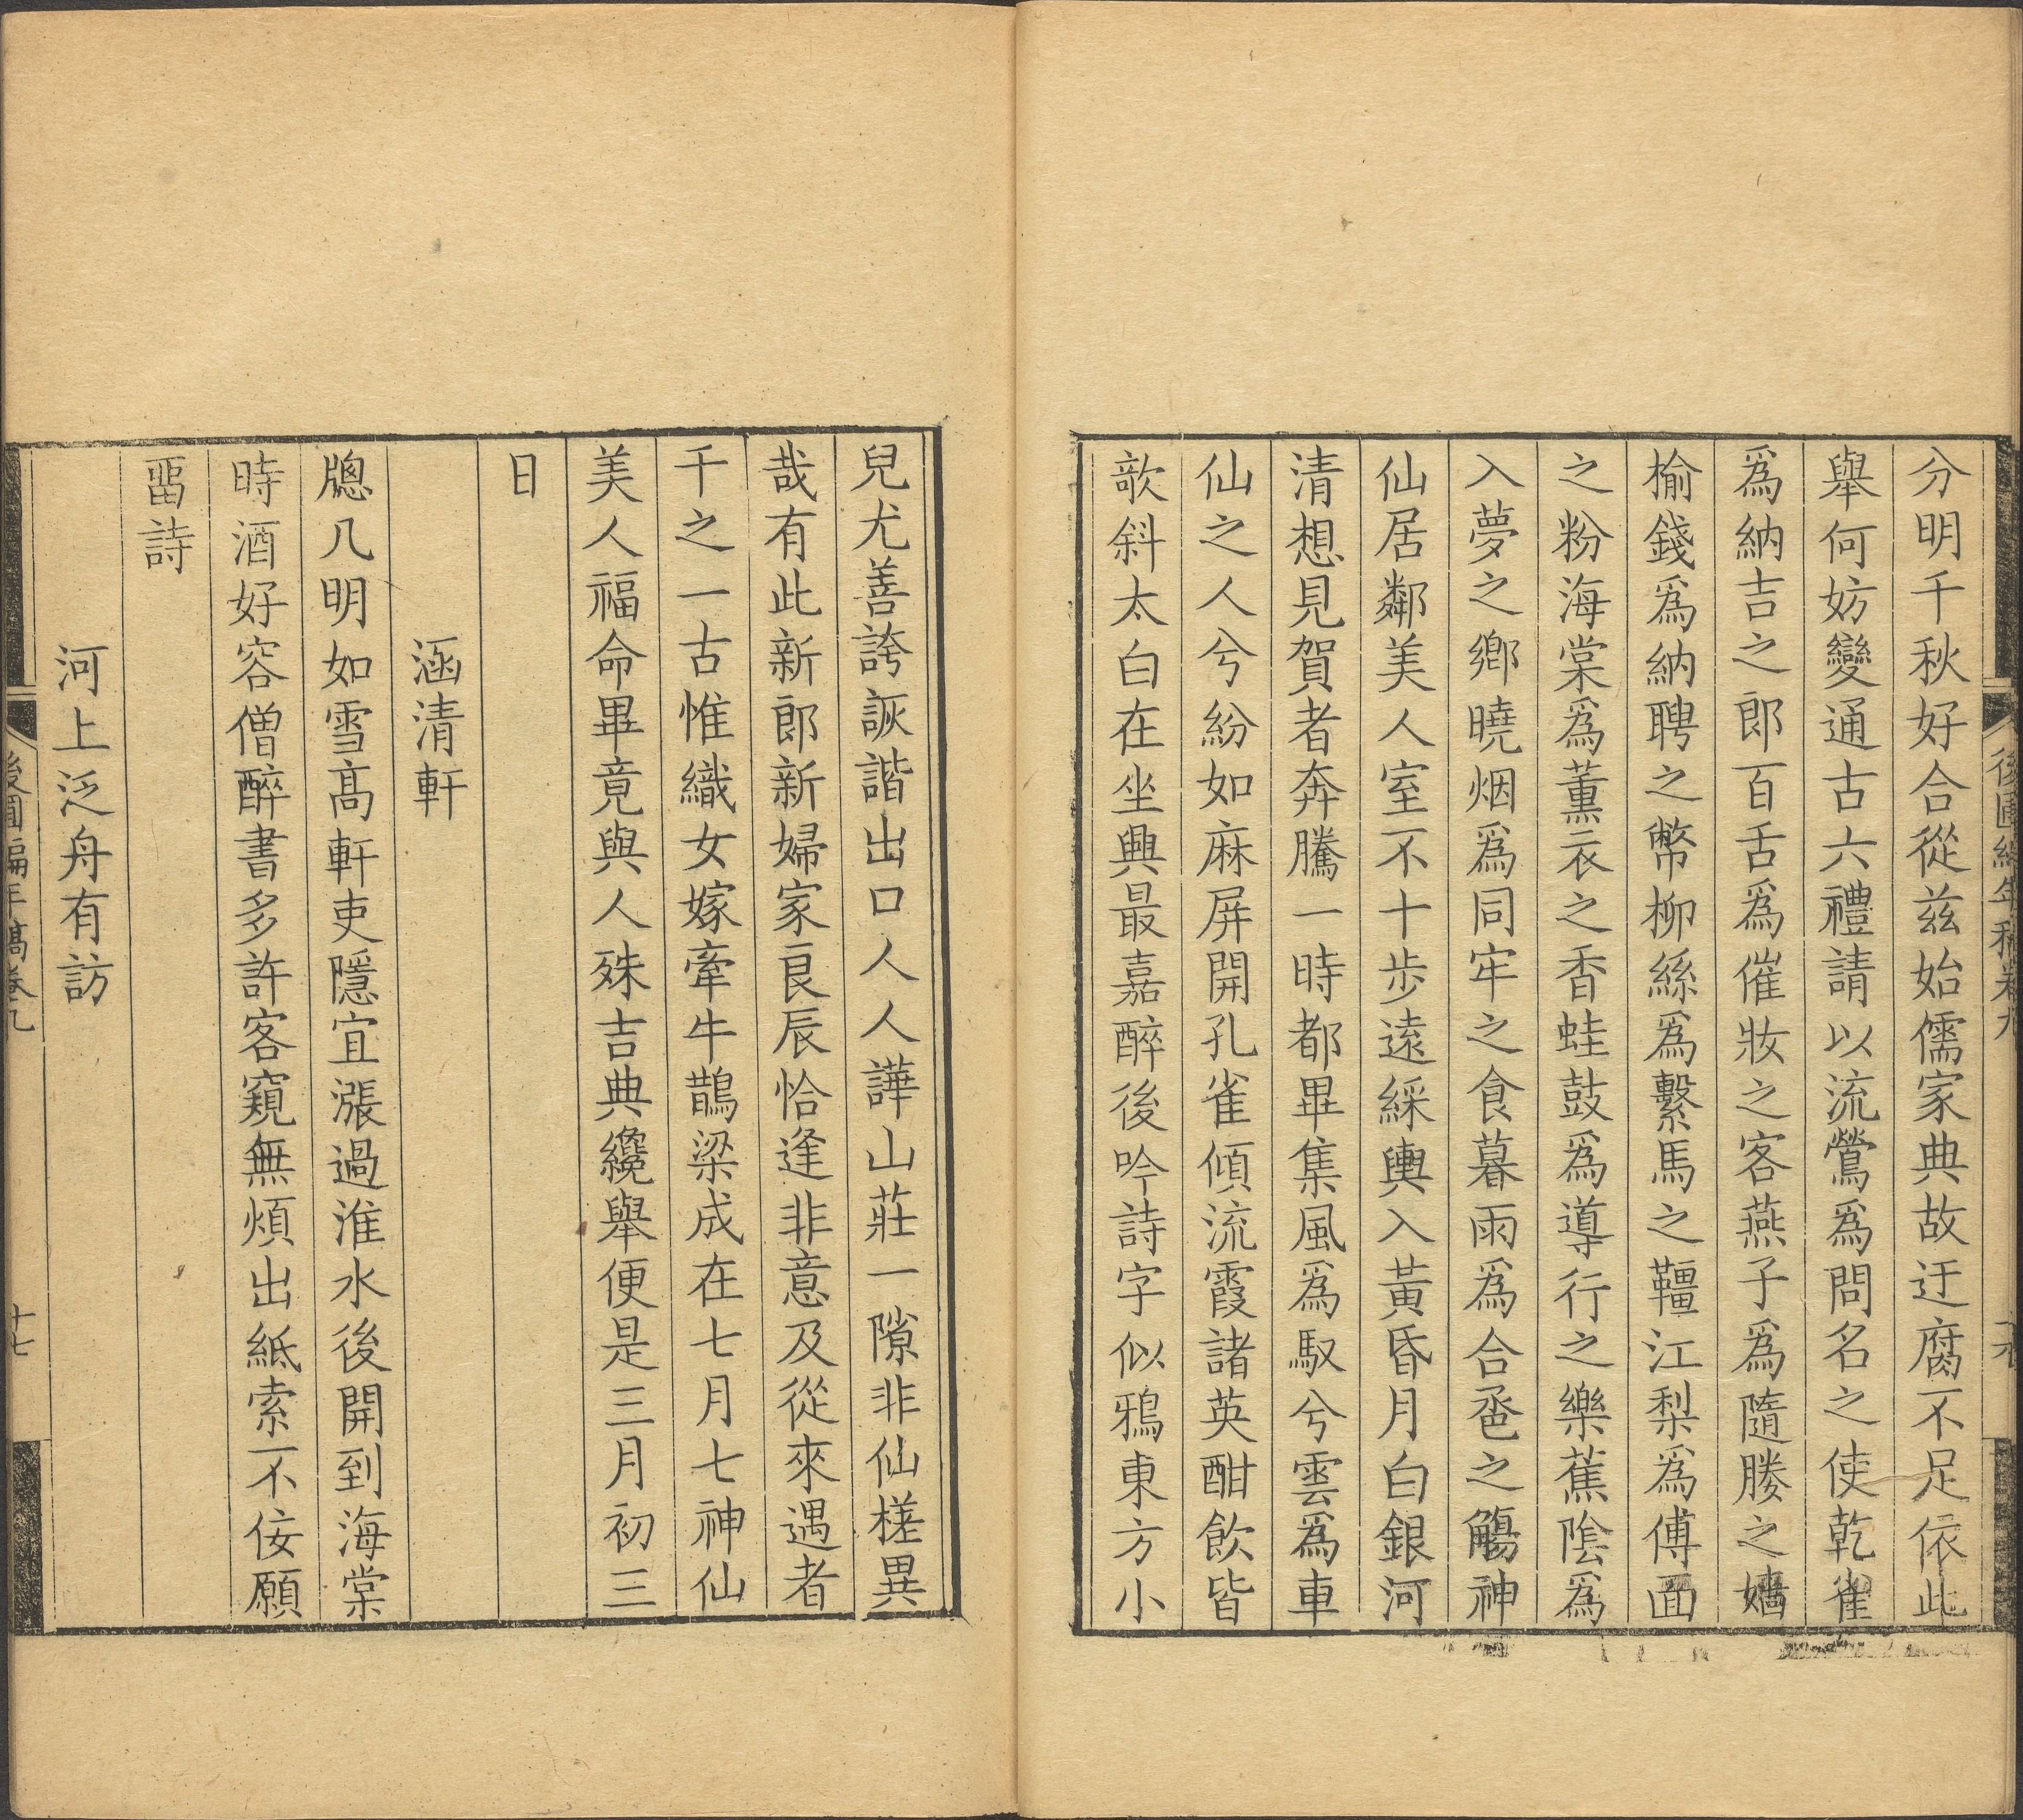 分明千秋好合從茲始儒家典故迂腐不足依此
舉何妨變通古六禮請以流鶯爲問名之使乾雀
爲納吉之郎百舌爲催妝之客燕子爲隨媵之嬙
榆錢爲納聘之幣柳絲爲繫馬之韁江梨爲傅面
之粉海棠爲薰衣之香蛙鼓爲導行之樂蕉陰爲
入夢之鄉曉烟爲同牢之食暮雨爲合巹之觴神
仙居鄰美人室不十步遠綵輿入黃昏月白銀河
清想見賀者奔騰一時都畢集風爲馭兮雲爲車
仙之人兮紛如麻屏開孔雀傾流霞諸英酣飲皆
歌斜太白在坐興最嘉醉後吟詩字似鴉東方小
後圃編年稿卷九
兒尤善誇詼諧出口人人譁山莊一隙非仙槎異
哉有此新郎新婦家良辰恰逢非意及從來遇者
千之一古惟織女嫁牽牛鵲梁成在七月七神仙
美人福命畢竟與人殊吉典纔舉便是三月初三
日
涵清軒
牕几明如雪高軒吏隱宜漲過淮水後開到海棠
時酒好容僧醉書多許客窺無煩出紙索不佞願
畱詩
河上泛舟有訪
後圃編年稿卷九
十七